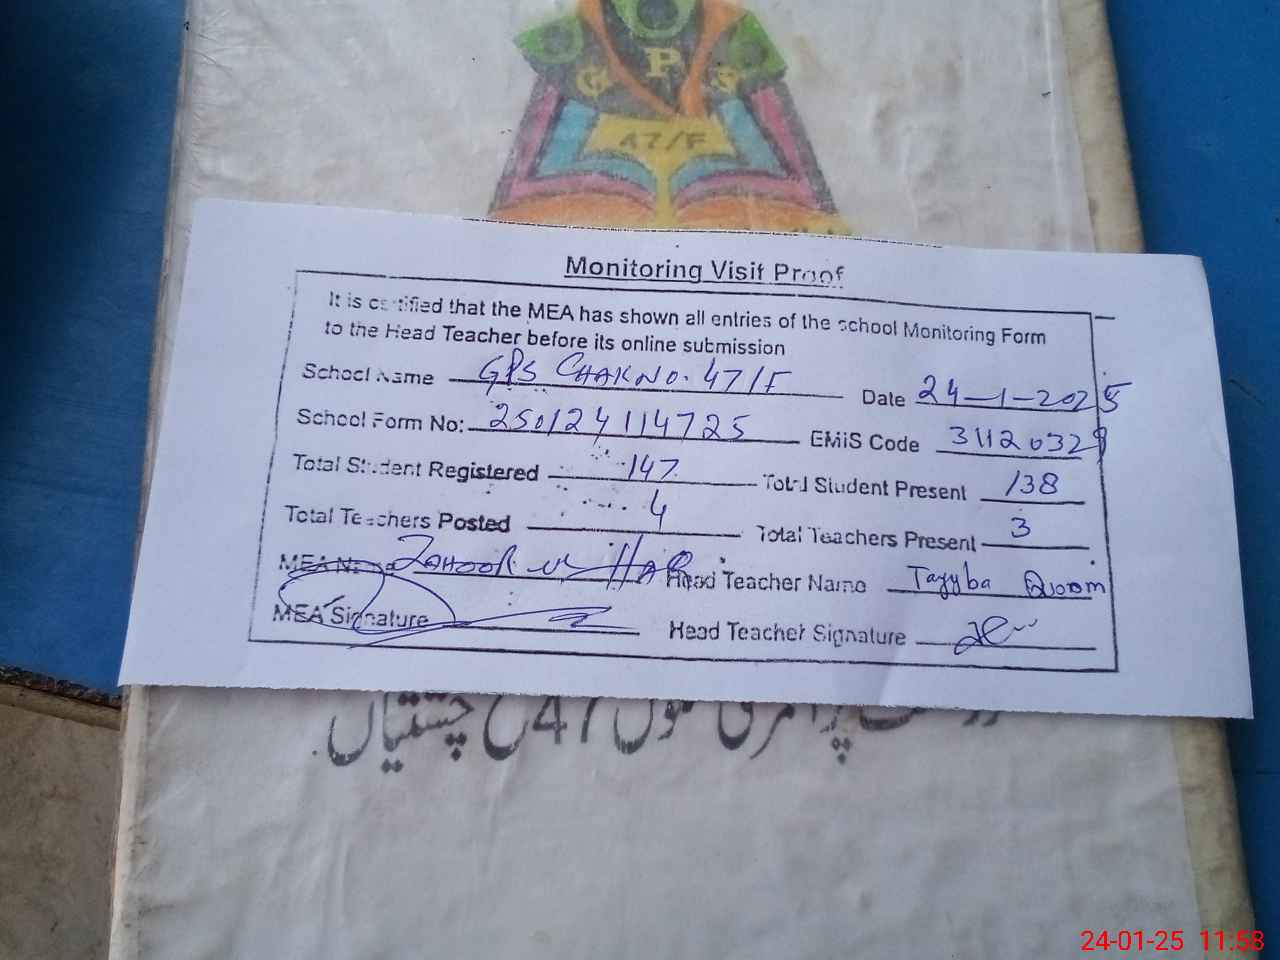 G P S
47/F
Monitoring Visit Proof
It is certified that the MEA has shown all entries of the school Monitoring Form
to the Head Teacher before its online submission
School Name GPS CHAK NO. 47/F Date 24-1-2025
School Form No: 250124114725 EMIS Code 31120329
Total Student Registered 147 Total Student Present 138
Total Teachers Posted 4 Total Teachers Present 3
MEA Name ZAHOOR UL HAQ Head Teacher Name Tayyba Qroom
MEA Signature Head Teacher Signature
47 چشتیاں
24-01-25 11:58